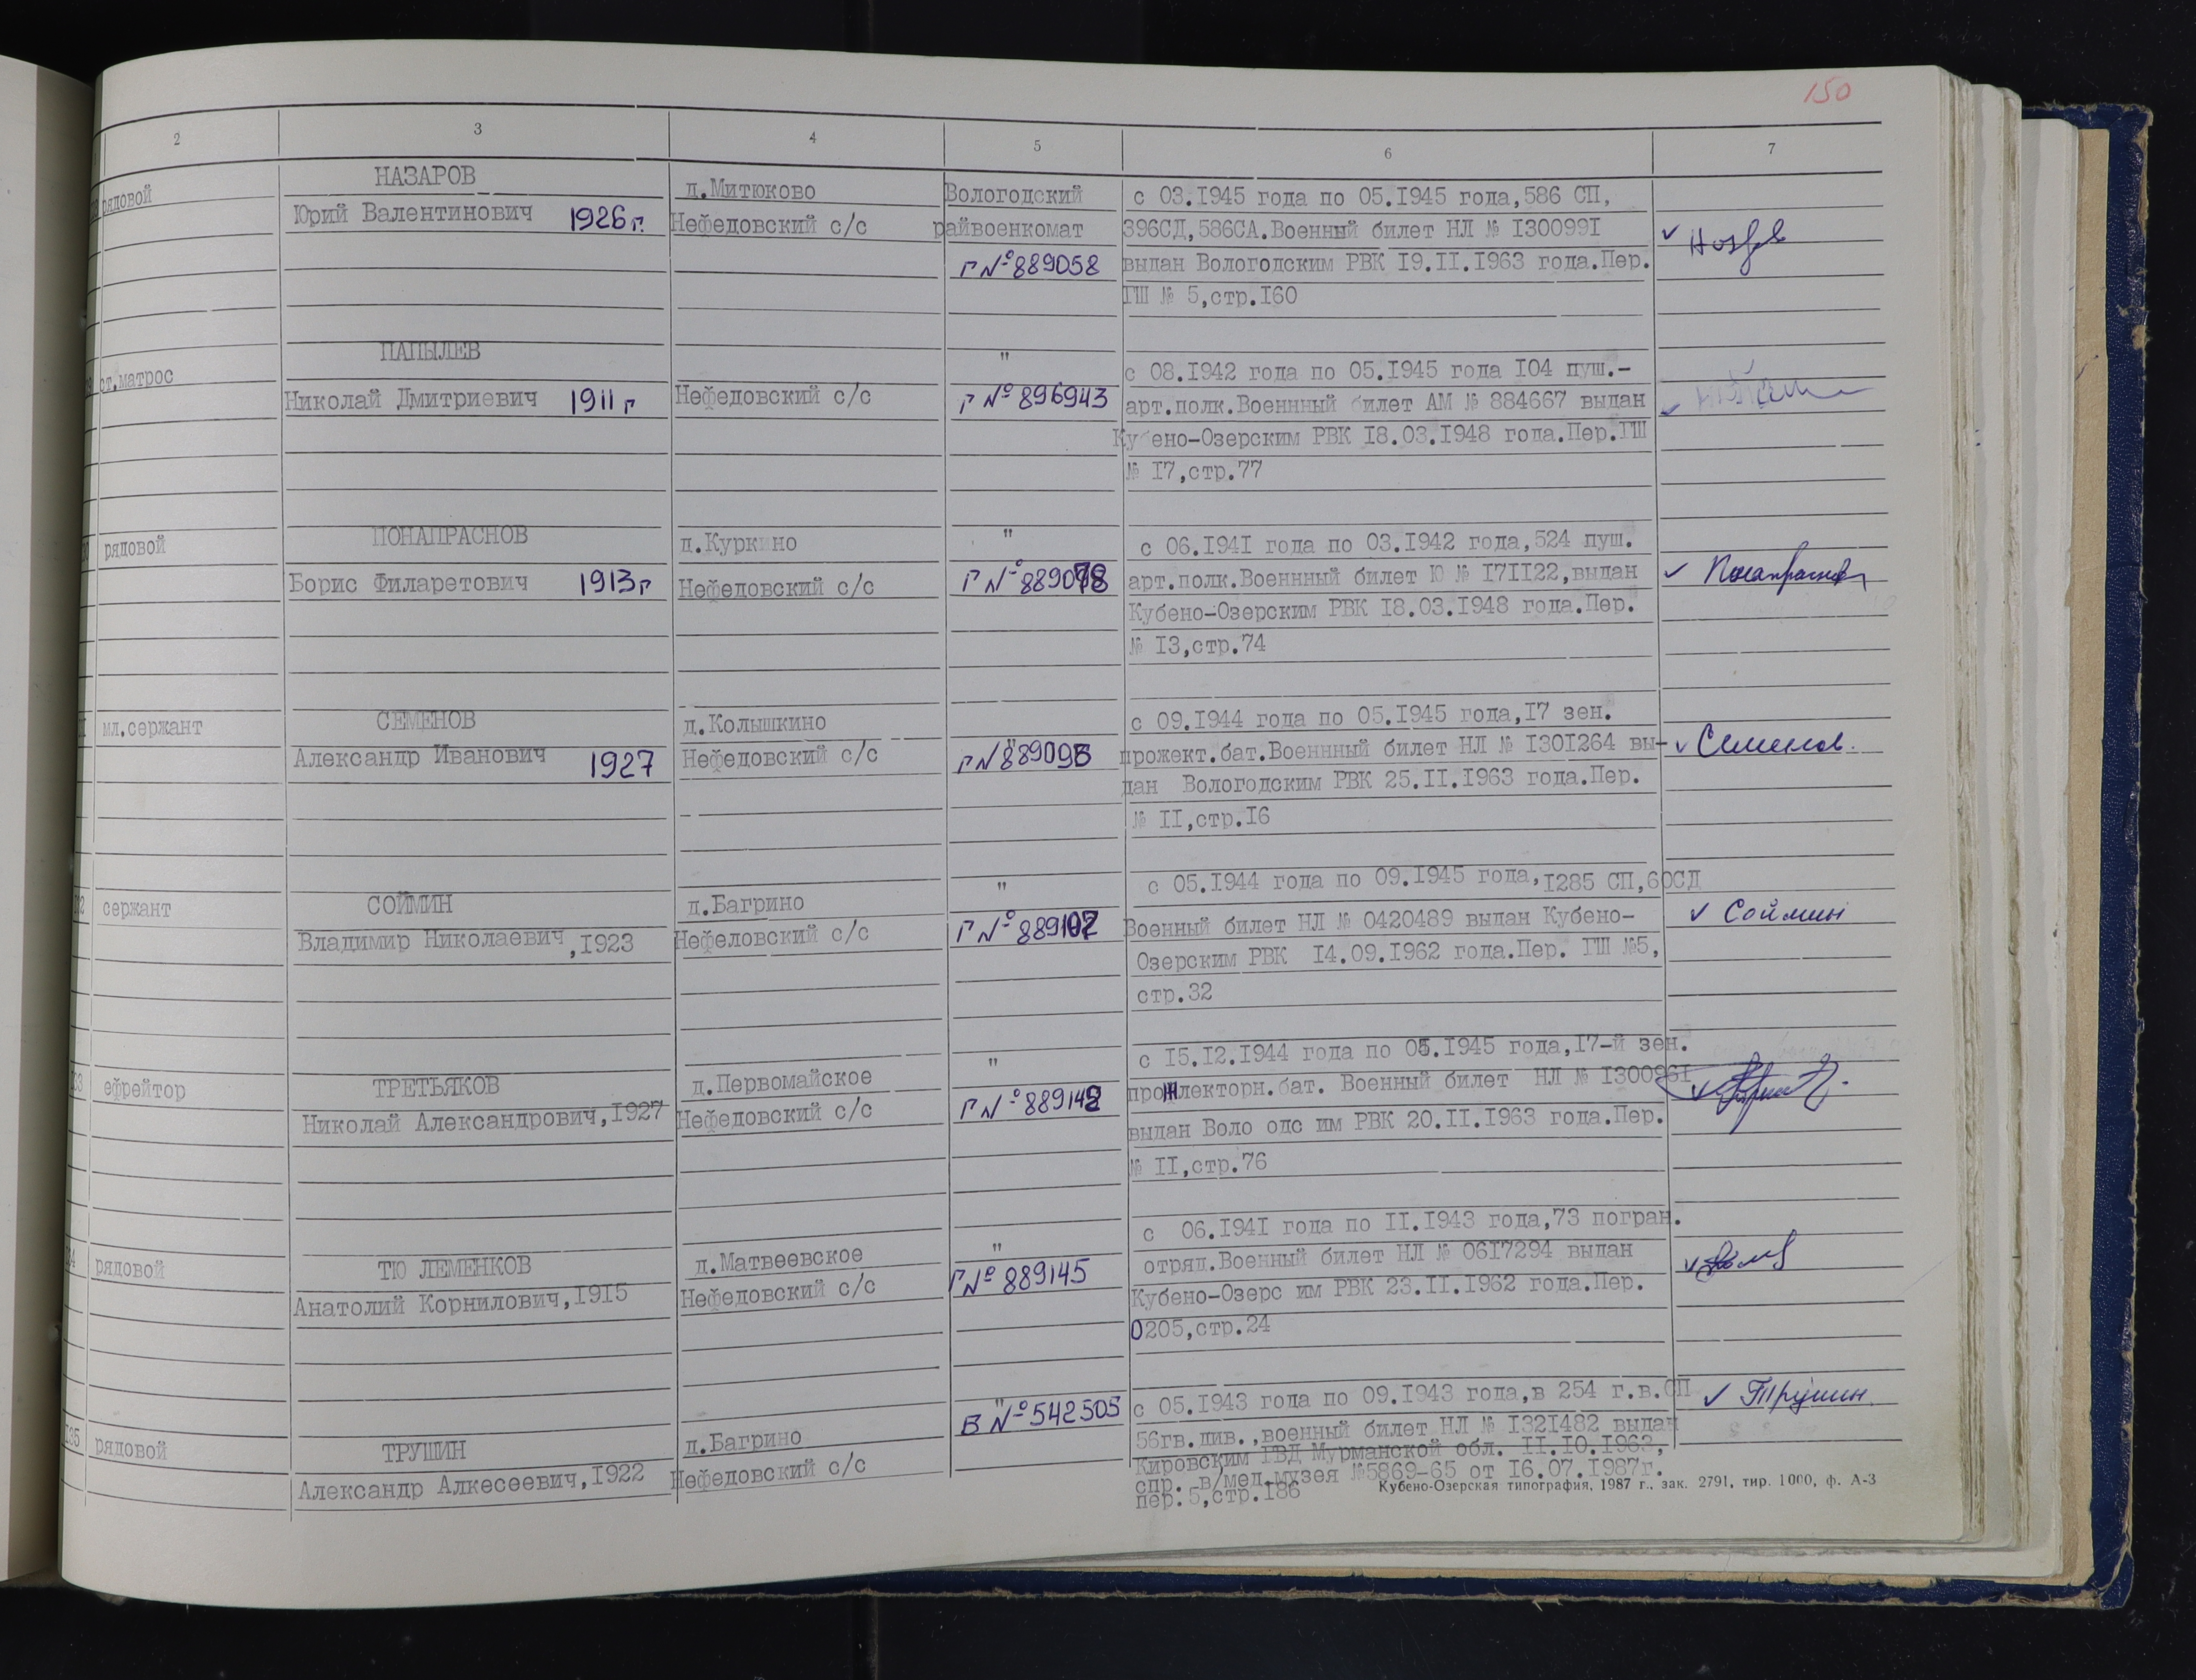 150
2 3 4 5 6 7
рядовой
НАЗАРОВ
Юрий Валентинович 1926 г.
д.Митюково
Нефедовский с/с
Вологодский
райвоенкомат
Г № 889058
с 03.1945 года по 05.1945 года,586 СП,
396СД,586СА.Военный билет НЛ № 1300991
выдан Вологодским РВК 19.II.1963 года.Пер.
ГШ № 5,стр.160
ст.матрос
ПАПЫЛЕВ
Николай Дмитриевич 1911 г
Нефедовский с/с
"
Г № 896943
с 08.1942 года по 05.1945 года 104 пуш.-
арт.полк.Военнный билет АМ № 884667 выдан
Кубено-Озерским РВК 18.03.1948 года.Пер.ГШ
№ 17,стр.77
рядовой
ПОНАПРАСНОВ
Борис Филаретович 1913 г
д.Куркино
Нефедовский с/с
"
Г № 889078
с 06.1941 года по 03.1942 года,524 пуш.
арт.полк.Военнный билет Ю № 171122,выдан
Кубено-Озерским РВК 18.03.1948 года.Пер.
№ 13,стр.74
✓ Понапраснов
мл.сержант
СЕМЕНОВ
Александр Иванович 1927
д.Колышкино
Нефедовский с/с
"
Г № 889093
с 09.1944 года по 05.1945 года,17 зен.
прожект.бат.Военнный билет НЛ № 1301264 вы-
дан Вологодским РВК 25.II.1963 года.Пер.
№ II,стр.16
✓ Семенов.
сержант
СОЙМИН
Владимир Николаевич,1923
д.Багрино
Нефеловский с/с
"
Г № 889107
с 05.1944 года по 09.1945 года,1285 СП,60СД
Военный билет НЛ № 0420489 выдан Кубено-
Озерским РВК 14.09.1962 года.Пер. ГШ №5,
стр.32
✓ Соймин
ефрейтор
ТРЕТЬЯКОВ
Николай Александрович,1927
д.Первомайское
Нефедовский с/с
"
Г № 889142
с 15.12.1944 года по 05.1945 года,17-й зен.
прожлекторн.бат. Военный билет НЛ № 1300961
выдан Воло одс им РВК 20.II.1963 года.Пер.
№ II,стр.76
рядовой
ТЮ ЛЕМЕНКОВ
Анатолий Корнилович,1915
д.Матвеевское
Нефедовский с/с
"
Г № 889145
с 06.1941 года по II.1943 года,73 погран.
отряд.Военный билет НЛ № 0617294 выдан
Кубено-Озерс им РВК 23.II.1962 года.Пер.
0205,стр.24
135 рядовой
ТРУШИН
Александр Алкесеевич,1922
д.Багрино
Нефедовский с/с
"
В № 542505
с 05.1943 года по 09.1943 года,в 254 г.в.СП
56гв.див.,военный билет НЛ № 1321482 выдан
Кировским ГВД Мурманской обл. II.10.1963,
спр. в/мед.музея №5869-65 от 16.07.1987г.
пер.5,стр.186
✓ Трушин.
Кубено-Озерская типография, 1987 г., зак. 2791, тир. 1000, ф. А-3